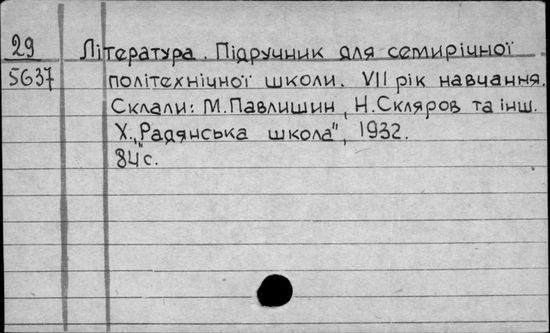 29 Література. Підручник для семирічної
5637 політехнічної школи. VII рік навчання.
Склали: М.Павлишин, Н.Скляров та інш.
Х., „Радянська школа", 1932.
84с.